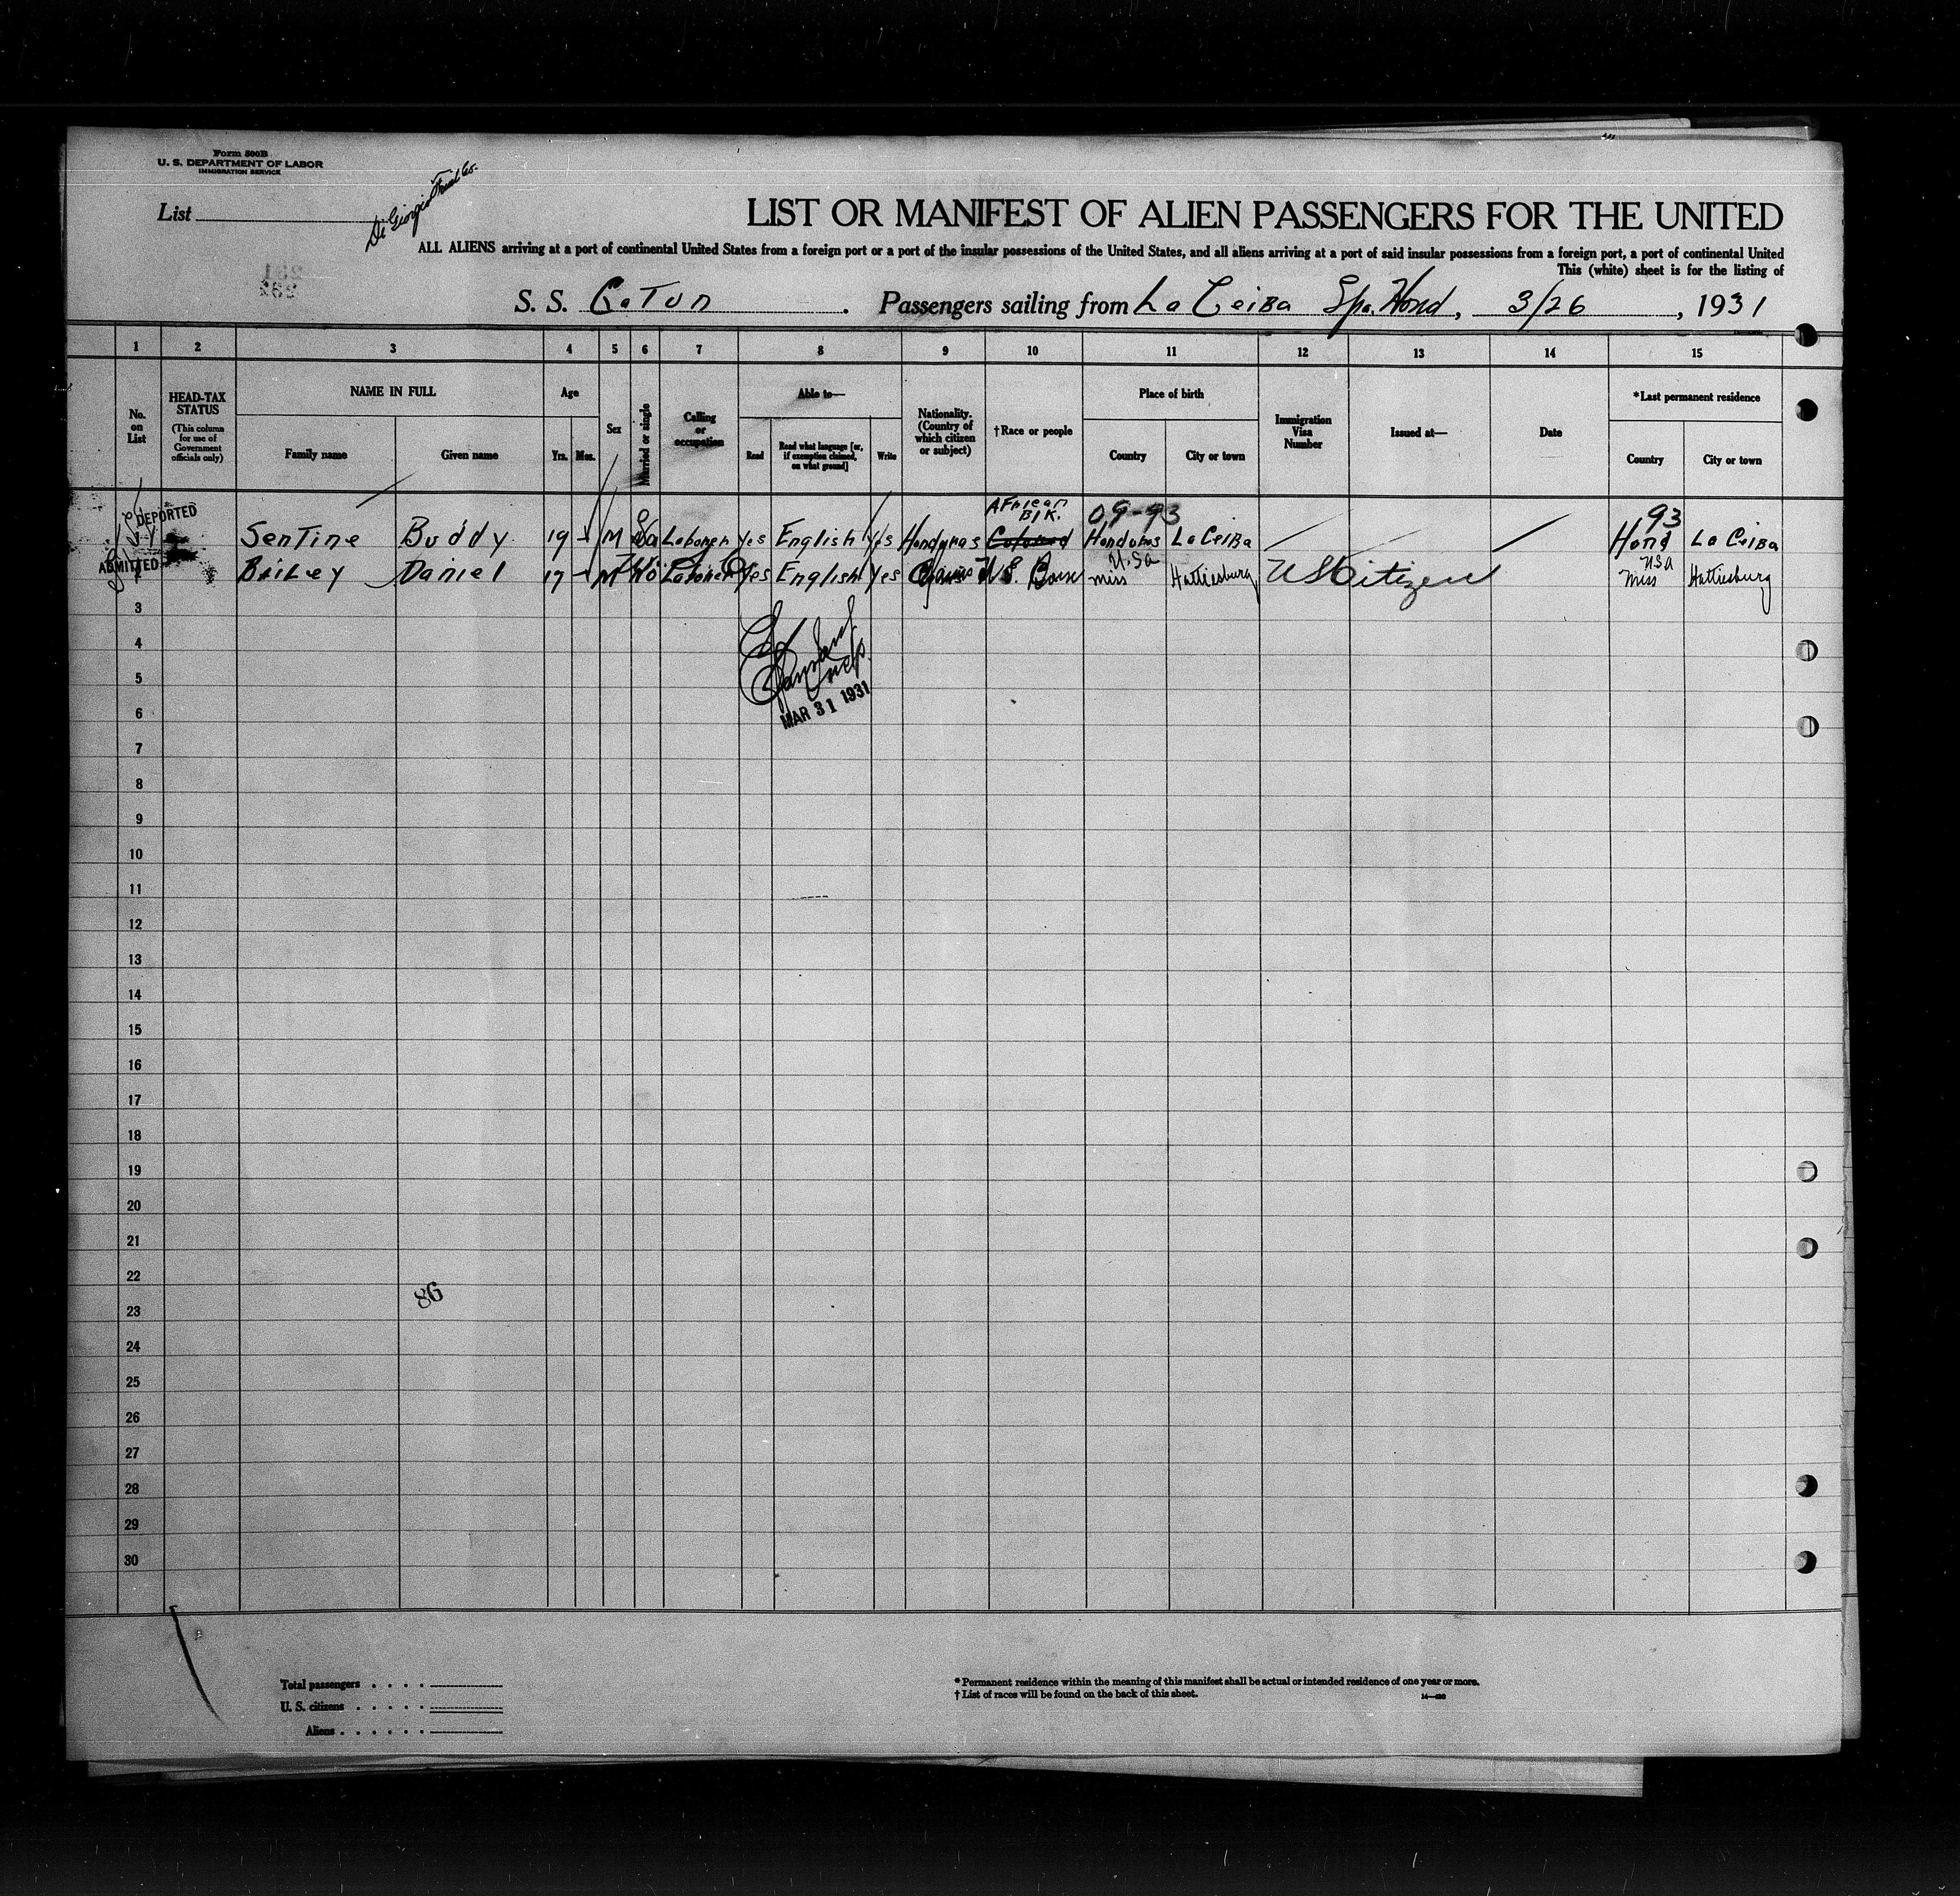 Form 500B
U. S. DEPARTMENT OF LABOR
IMMIGRATION SERVICE
List
Di Giorgio Fruit Co.
LIST OR MANIFEST OF ALIEN PASSENGERS FOR THE UNITED
ALL ALIENS arriving at a port of continental United States from a foreign port or a port of the insular possessions of the United States, and all aliens arriving at a port of said insular possessions from a foreign port, a port of continental United
This (white) sheet is for the listing of
S. S. Gatun. Passengers sailing from La Ceiba Spa. Hond, 3/26, 1931
1 2 3 4 5 6 7 8 9 10 11 12 13 14 15
No. on List
HEAD-TAX STATUS
(This column for use of Government officials only)
NAME IN FULL
Family name
Given name
Age
Yrs. Mos.
Sex
Married or single
Calling or occupation
Able to—
Read
Read what language [or, if exemption claimed, on what ground]
Write
Nationality. (Country of which citizen or subject)
†Race or people
Place of birth
Country
City or town
Immigration Visa Number
Issued at—
Date
*Last permanent residence
Country
City or town
African Blk. 09-93 93
DEPORTED Sentine Buddy 19 M Laborer Yes English Yes Honduras Colored Honduras La Ceiba Hond La Ceiba
U.Sa USA
ADMITTED Bailey Daniel 17 M Laborer Yes English Yes U.S. Born Miss Hattiesburg US Citizen Miss Hattiesburg
3
4
5
6
MAR 31 1931
7
8
9
10
11
12
13
14
15
16
17
18
19
20
21
22
86
23
24
25
26
27
28
29
30
Total passengers
U. S. citizens
Aliens
*Permanent residence within the meaning of this manifest shall be actual or intended residence of one year or more.
†List of races will be found on the back of this sheet.